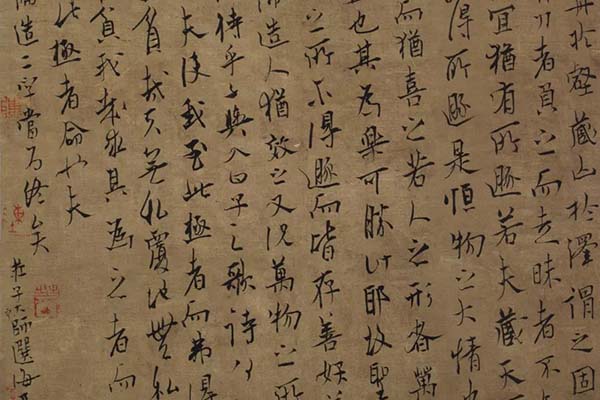 舟於壑藏山於澤謂之固
力者負之而走昧者不
宜猶有所遯若夫藏天
得所遯是恒物之大情也
而猶喜之若人之形者萬
也其為樂可勝計耶故聖
之所不得遯而皆存善妖
造人猶效之又況萬物之所
待乎子輿入曰子之歌詩
夫使我至此極者而弗得
貧哉天無私覆地無私
貧我哉求其為之者而
此極者命也夫
造二字當为終矣
莊子大宗師選海